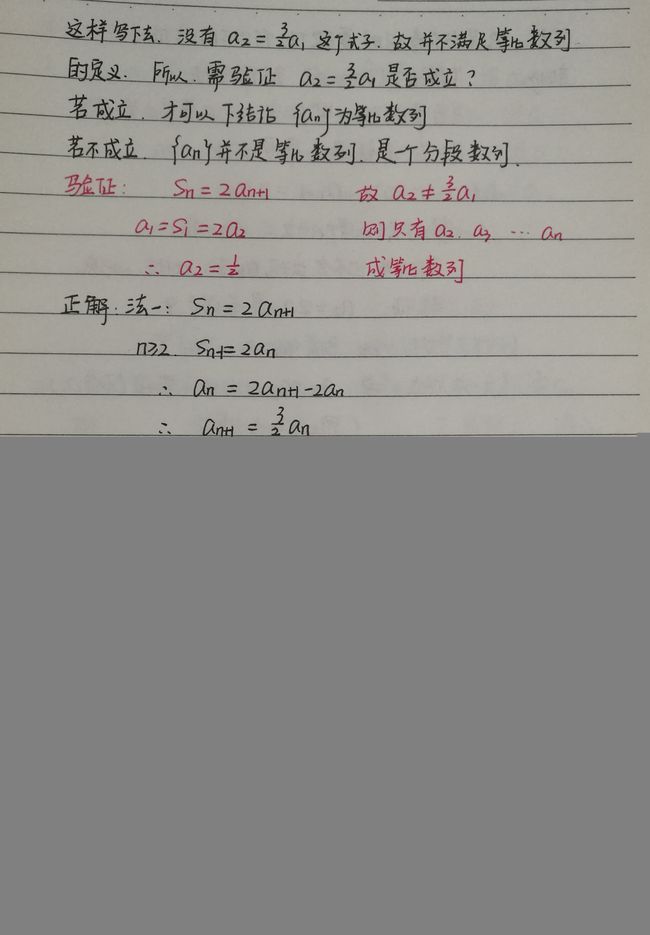 这样写下去, 没有 a₂=3/2a₁ 这个式子. 故并不满足等比数列
的定义. 所以, 需验证 a₂=3/2a₁ 是否成立?
若成立, 才可以下结论 {aₙ}为等比数列
若不成立, {aₙ}并不是等比数列, 是一个分段数列.
验证: Sₙ=2aₙ₊₁ 故 a₂≠3/2a₁
a₁=S₁=2a₂ 则只有 a₂. a₃ … aₙ
∴ a₂=1/2 成等比数列
正解: 法一: Sₙ=2aₙ₊₁
n≥2. Sₙ₋₁=2aₙ
∴ aₙ=2aₙ₊₁-2aₙ
∴ aₙ₊₁=3/2aₙ